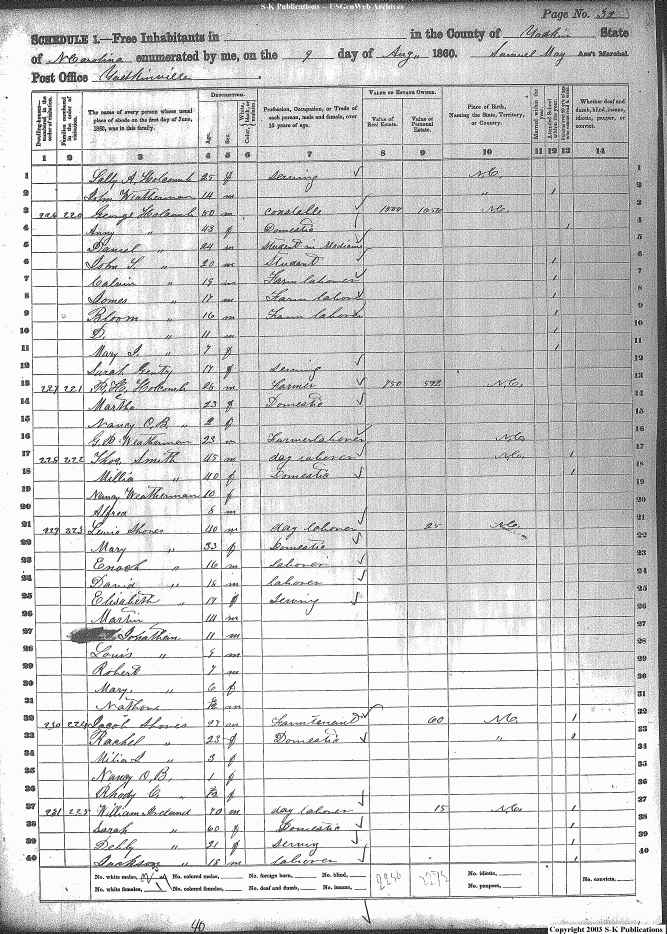 S-K Publications - USGenWeb Archives
Page No. 32
SCHEDULE 1.—Free Inhabitants in in the County of Yadkin State
of N Carolina enumerated by me, on the 9 day of Aug, 1860. Samuel May Ass't Marshal.
Post Office Yadkinville.
Dwelling-houses—numbered in the order of visitation.
Families numbered in the order of visitation.
The name of every person whose usual place of abode on the first day of June, 1860, was in this family.
DESCRIPTION.
Age.
Sex.
Color,
Profession, Occupation, or Trade of each person, male and female, over 15 years of age.
VALUE OF ESTATE OWNED.
Value of Real Estate.
Value of Personal Estate.
Place of Birth, Naming the State, Territory, or Country.
Married within the year.
Attended School within the year.
Whether deaf and dumb, blind, insane, idiotic, pauper, or convict.
1 2 3 4 5 6 7 8 9 10 11 12 13 14
1 Sally A. Holcomb 25 f serving NC. 1
2 John Weatherman 14 m " / 2
3 226 220 George Holcomb 50 m constable 1500 NC. 3
4 Anny " 43 f Domestic / 4
5 Daniel " 24 m Student in Medicine 5
6 John S. " 20 m Student / 6
7 Calvin " 19 m Farm laborer / 7
8 James " 17 m Farm laborer / 8
9 Bloom " 16 m Farm laborer / 9
10 D. " 11 m / 10
11 Mary " 7 f / 11
12 Sarah Genty 17 f serving 12
13 227 221 Holcomb 28 m Farmer 750 592 NC. 13
14 Martha " 23 f Domestic 14
15 Nancy O.B. " 2 f 15
16 Weatherman 23 m Farm laborer NC. 16
17 228 222 Thos. Smith 45 m day laborer NC. / 17
18 Millia " 40 f Domestic / 18
19 Nancy Weatherman 10 f 19
20 Alfred 8 m 20
21 229 223 Lewis Shores 40 m day laborer 25 NC. 21
22 Mary " 33 f Domestic 22
23 Enoch " 16 m laborer 23
24 David " 18 m laborer 24
25 Elisabeth " 17 f serving 25
26 Martin 14 m 26
27 Jonathan 11 m 27
28 Louis " 9 m 28
29 Robert 7 m 29
30 Mary. " 6 f 30
31 m 31
32 230 224 Jacob Shores 27 m Farm tenant 60 NC. / 32
33 Rachel " 23 f Domestic " / 33
34 " 3 f 34
35 Nancy O.B. 1 f 35
36 Rhody C. " f 36
37 231 225 William Ireland 70 m day laborer 15 NC. / 37
38 Sarah " 60 f Domestic / 38
39 Debby " 21 f serving / 39
40 Jackson " 18 m laborer / 40
No. white males, No. colored males, No. foreign born, No. blind, No. idiotic, No. convicts,
No. white females, No. colored females, No. deaf and dumb, No. insane, No. paupers,
40
Copyright 2003 S-K Publications